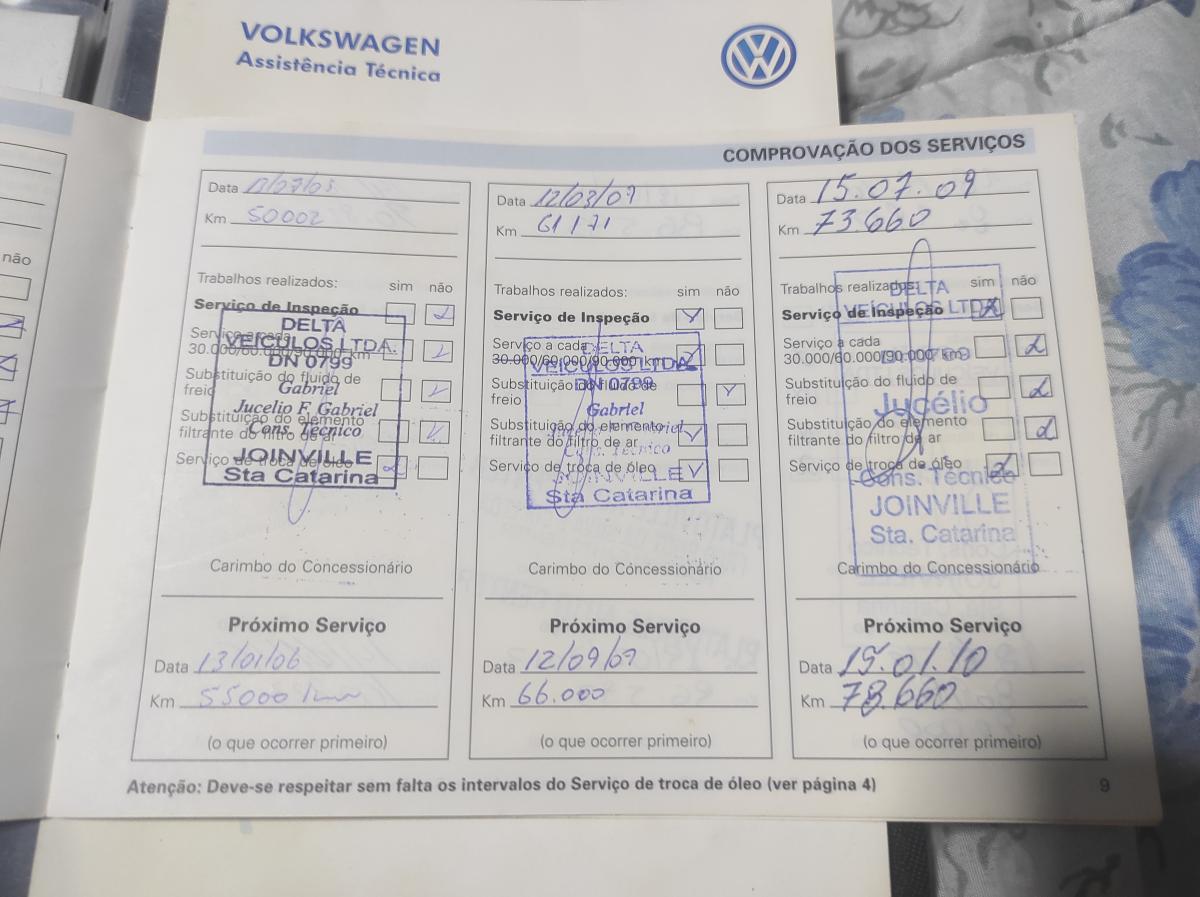 VOLKSWAGEN
Assistência Técnica
COMPROVAÇÃO DOS SERVIÇOS
não
Data
Km 50002
Trabalhos realizados: sim não
Serviço de Inspeção
Serviço a cada
30.000/60.000/90.000 km
Substituição do fluido de
freio
Substituição do elemento
filtrante do filtro de ar
Serviço de troca de óleo
DELTA
VEÍCULOS LTDA.
DN 0799
Gabriel
Jucelio F. Gabriel
Cons. Técnico
JOINVILLE
Sta Catarina
Carimbo do Concessionário
Próximo Serviço
Data 13/01/06
Km 55000 km
(o que ocorrer primeiro)
Data 12/03/09
Km 61171
Trabalhos realizados: sim não
Serviço de Inspeção
Serviço a cada
30.000/60.000/90.000 km
Substituição do fluido de
freio
Substituição do elemento
filtrante do filtro de ar
Serviço de troca de óleo
DELTA
VEÍCULOS LTDA
DN 0799
Gabriel
Cons. Técnico
JOINVILLE
Sta Catarina
Carimbo do Concessionário
Próximo Serviço
Data 12/09/09
Km 66.000
(o que ocorrer primeiro)
Data 15.07.09
Km 73.660
Trabalhos realizados: sim não
Serviço de Inspeção
Serviço a cada
30.000/60.000/90.000 km
Substituição do fluido de
freio
Substituição do elemento
filtrante do filtro de ar
Serviço de troca de óleo
DELTA
VEÍCULOS LTDA
Jucélio
Cons. Técnico
JOINVILLE
Sta. Catarina
Carimbo do Concessionário
Próximo Serviço
Data 15.01.10
Km 78.660
(o que ocorrer primeiro)
Atenção: Deve-se respeitar sem falta os intervalos do Serviço de troca de óleo (ver página 4)
9